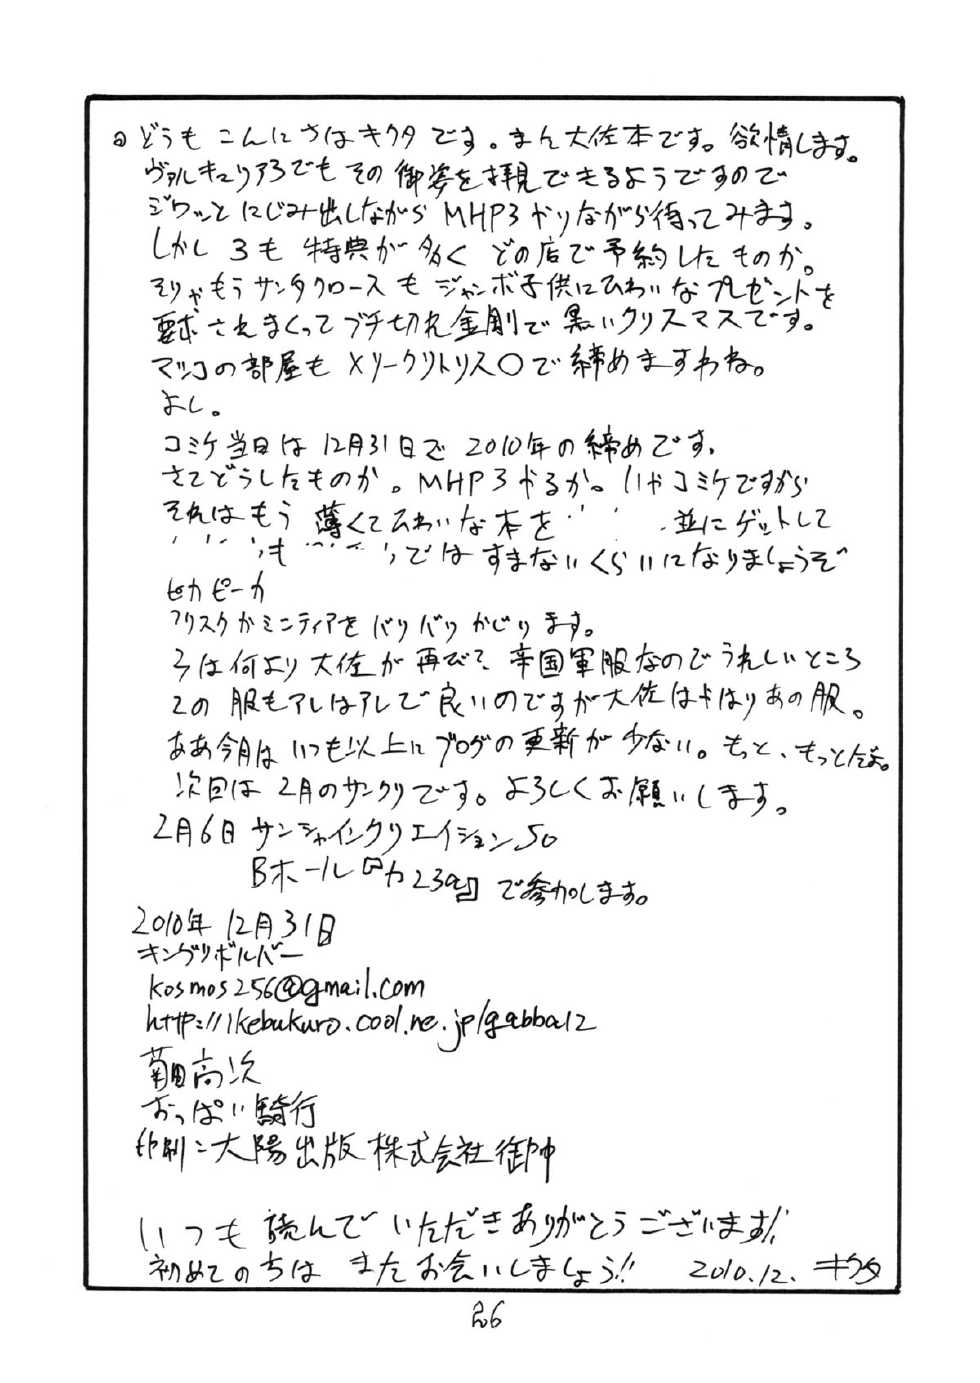 どうも こんにちはキクタです。また大佐本です。欲情します。
ヴァルキュリア3でもその御姿を拝見できるようですので
ジワッとにじみ出しながら MHP3やりながら待ってみます。
しかし 3も 特典が 多く どの店で予約したものか。
そりゃもうサンタクロースも ジャンボ子供にひわいなプレゼントを
要求されまくって ブチ切れ金剛で黒いクリスマスです。
マツコの部屋も メリークリトリス〇で締めますわね。
よし。
コミケ当日は 12月31日で 2010年の締めです。
さてどうしたものか。MHP3やるか。いやコミケですから
それはもう 薄くてひわいな本を 並にゲットして
も ではすまないくらいになりましょうぞ
ピカピーカ
フリスクかミンティアをバリバリかじります。
3は何より大佐が再びで帝国軍服なのでうれしいところ
2の服もアレはアレで良いのですが大佐はやはりあの服。
ああ今月はいつも以上にブログの更新が少ない。もっと、もっとだよ。
次回は 2月のサンクリです。よろしくお願いします。
2月6日 サンシャインクリエイション50
Bホール『カ23a』で参加します。
2010年 12月31日
キングリボルバー
kosmos256@gmail.com
http://ikebukuro.cool.ne.jp/gabba12
菊田高次
おっぱい騎行
印刷:大陽出版株式会社御中
いつも 読んで いただき ありがとうございます!!
初めての方は またお会いしましょう!! 2010.12. キクタ
26